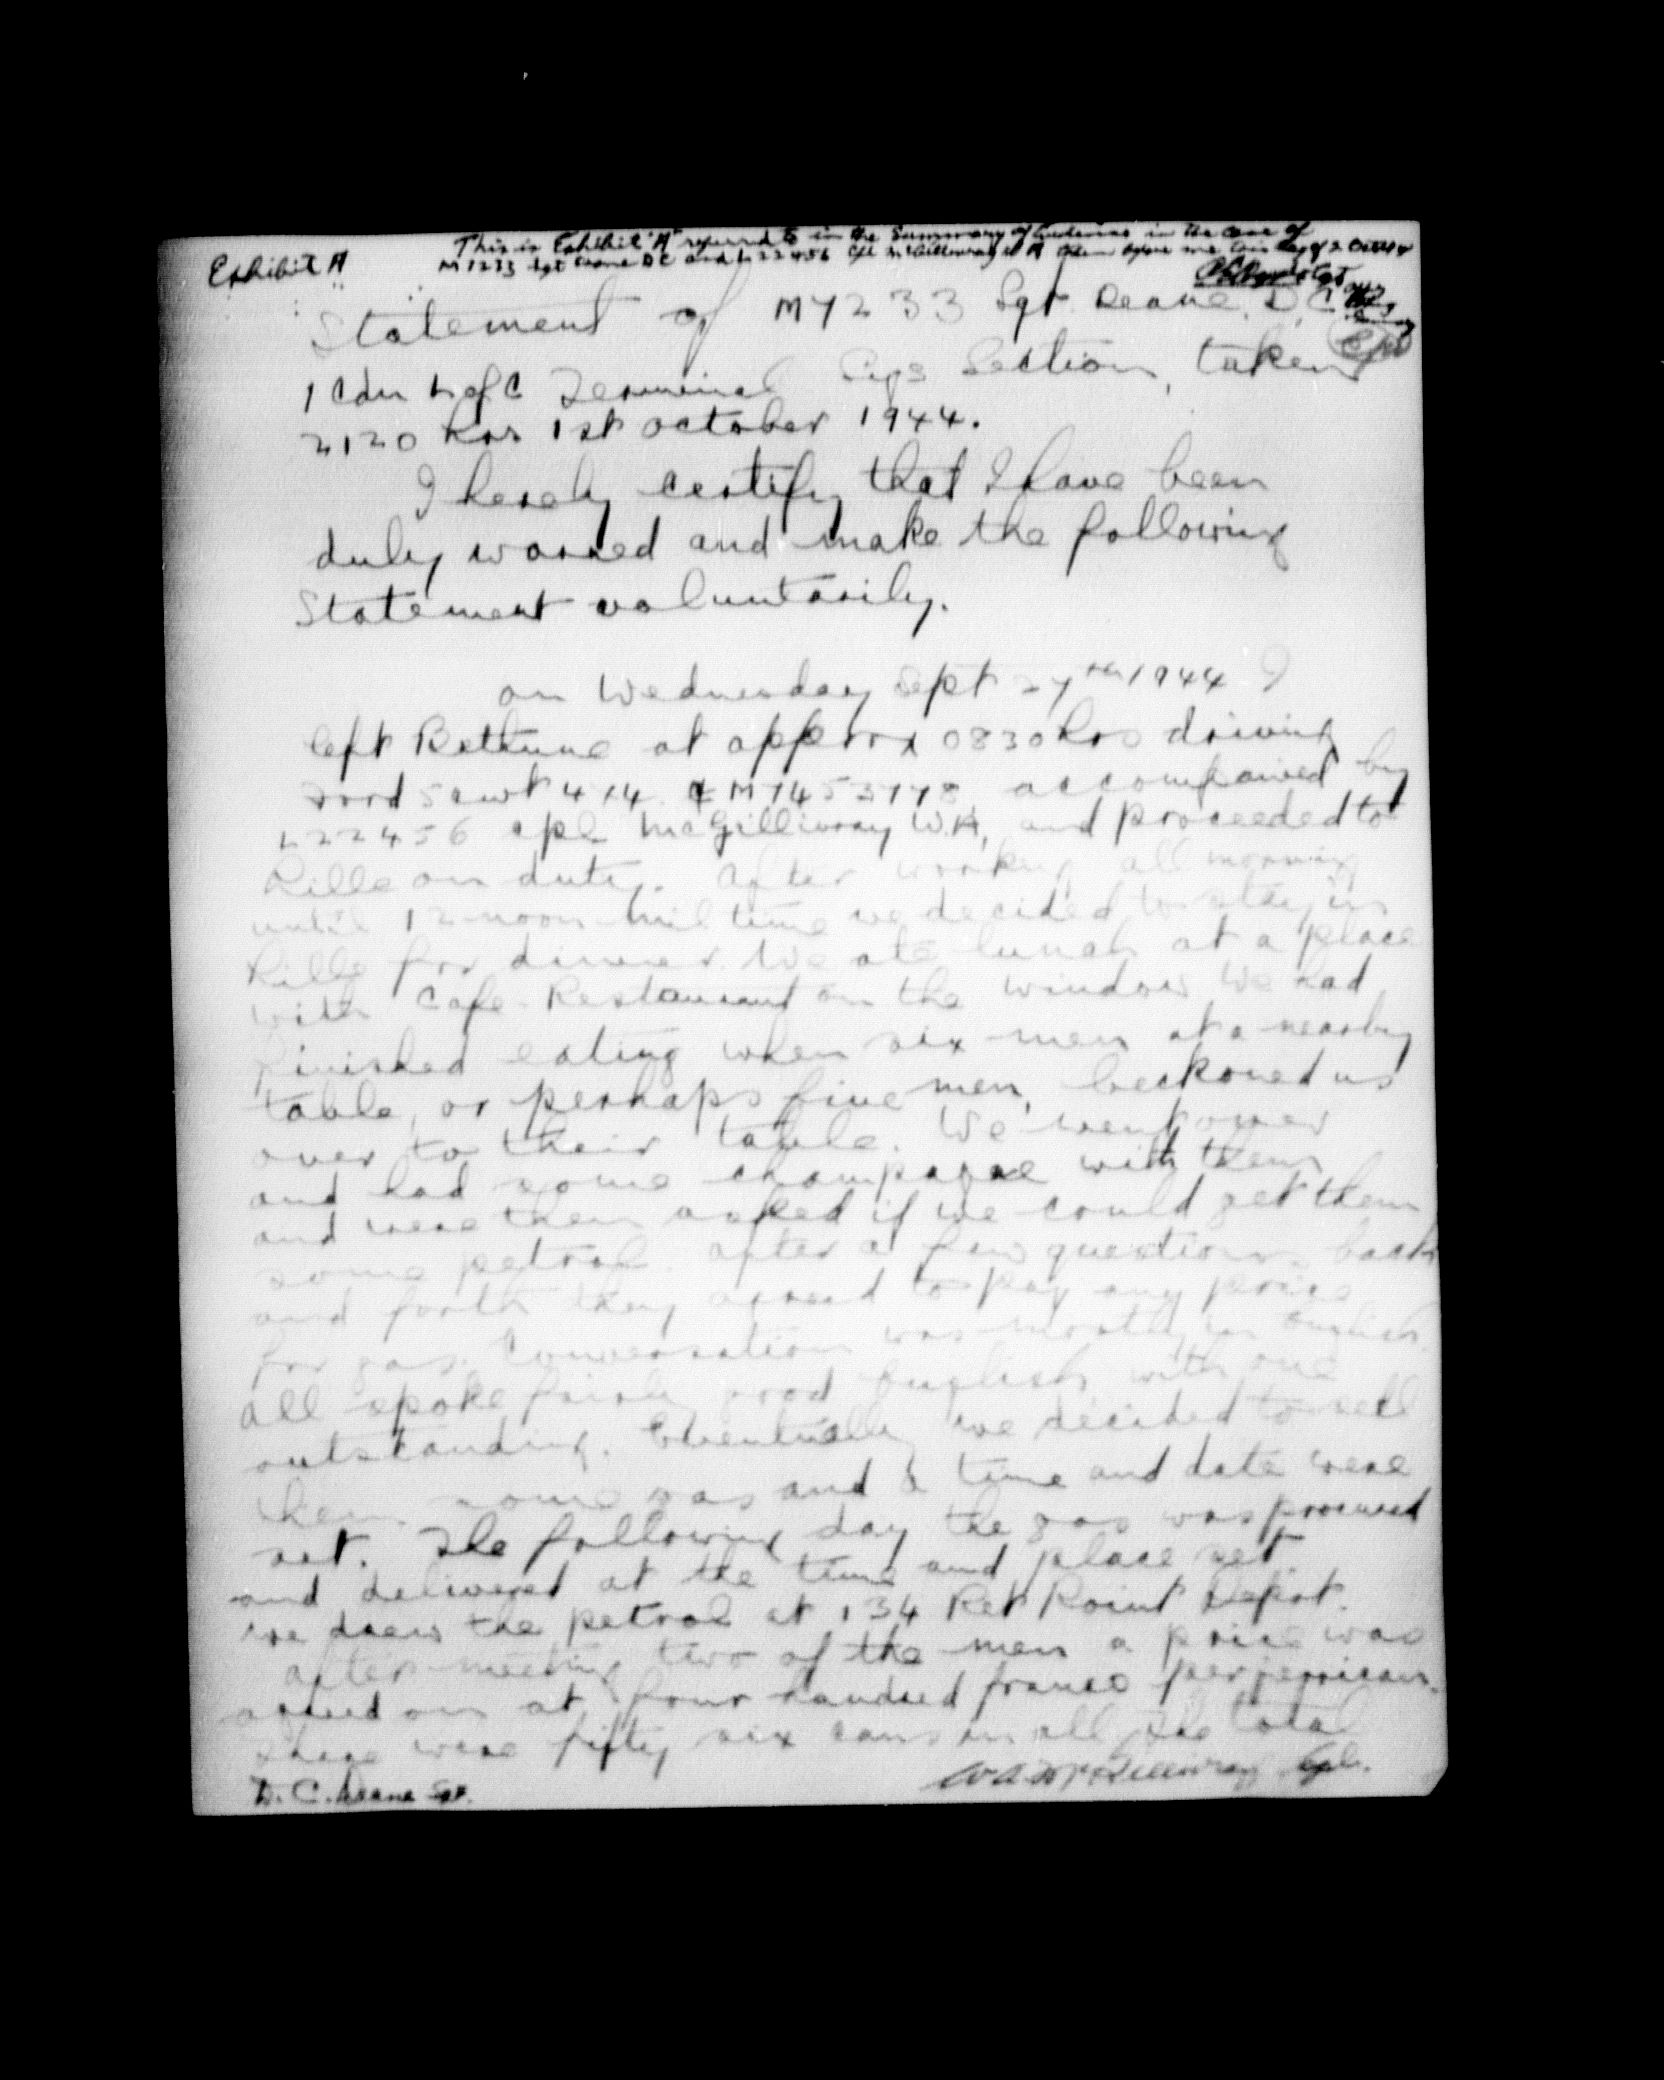 Exhibit A
This is Exhibit "A" referred to in the Summary of Evidence in the case of
M7233 Sgt Deane DC and L22456 Cpl McGillivray WA taken before me this day of 2 Oct 44
Statement of M7233 Sgt Deane, D.C.
1 Cdn L of C Terminal Sigs Section, taken
2120 hrs 1st October 1944.
I hereby certify that I have been
duly warned and make the following
Statement voluntarily.
on Wednesday Sept 27th 1944 I
left Bethune at approx 0830 hrs driving
Ford 5 cwt 4x4 accompanied by
L22456 cpl McGillivray W.A, and proceeded to
Lille on duty. After working all morning
until 12 noon mil time we decided to stay in
Lille for dinner. We ate lunch at a place
with Cafe-Restaurant on the window We had
finished eating when six men at a nearby
table, or perhaps five men, beckoned us
over to their table. We went over
and had some champagne with them
and were then asked if we could get them
some petrol. after a few questions back
and forth they agreed to pay any price
for gas. Conversation was mostly in English.
all spoke fairly good English with one
outstanding. Eventually we decided to sell
them some gas and a time and date were
set. The following day the gas was procured
and delivered at the time and place set.
we drew the petrol at 134 Ret Point Depot.
after meeting two of the men a price was
agreed on at four hundred francs per jerrican.
There were fifty six cans in all The total
D. C. Deane Sgt.
W A McGillivray Cpl.